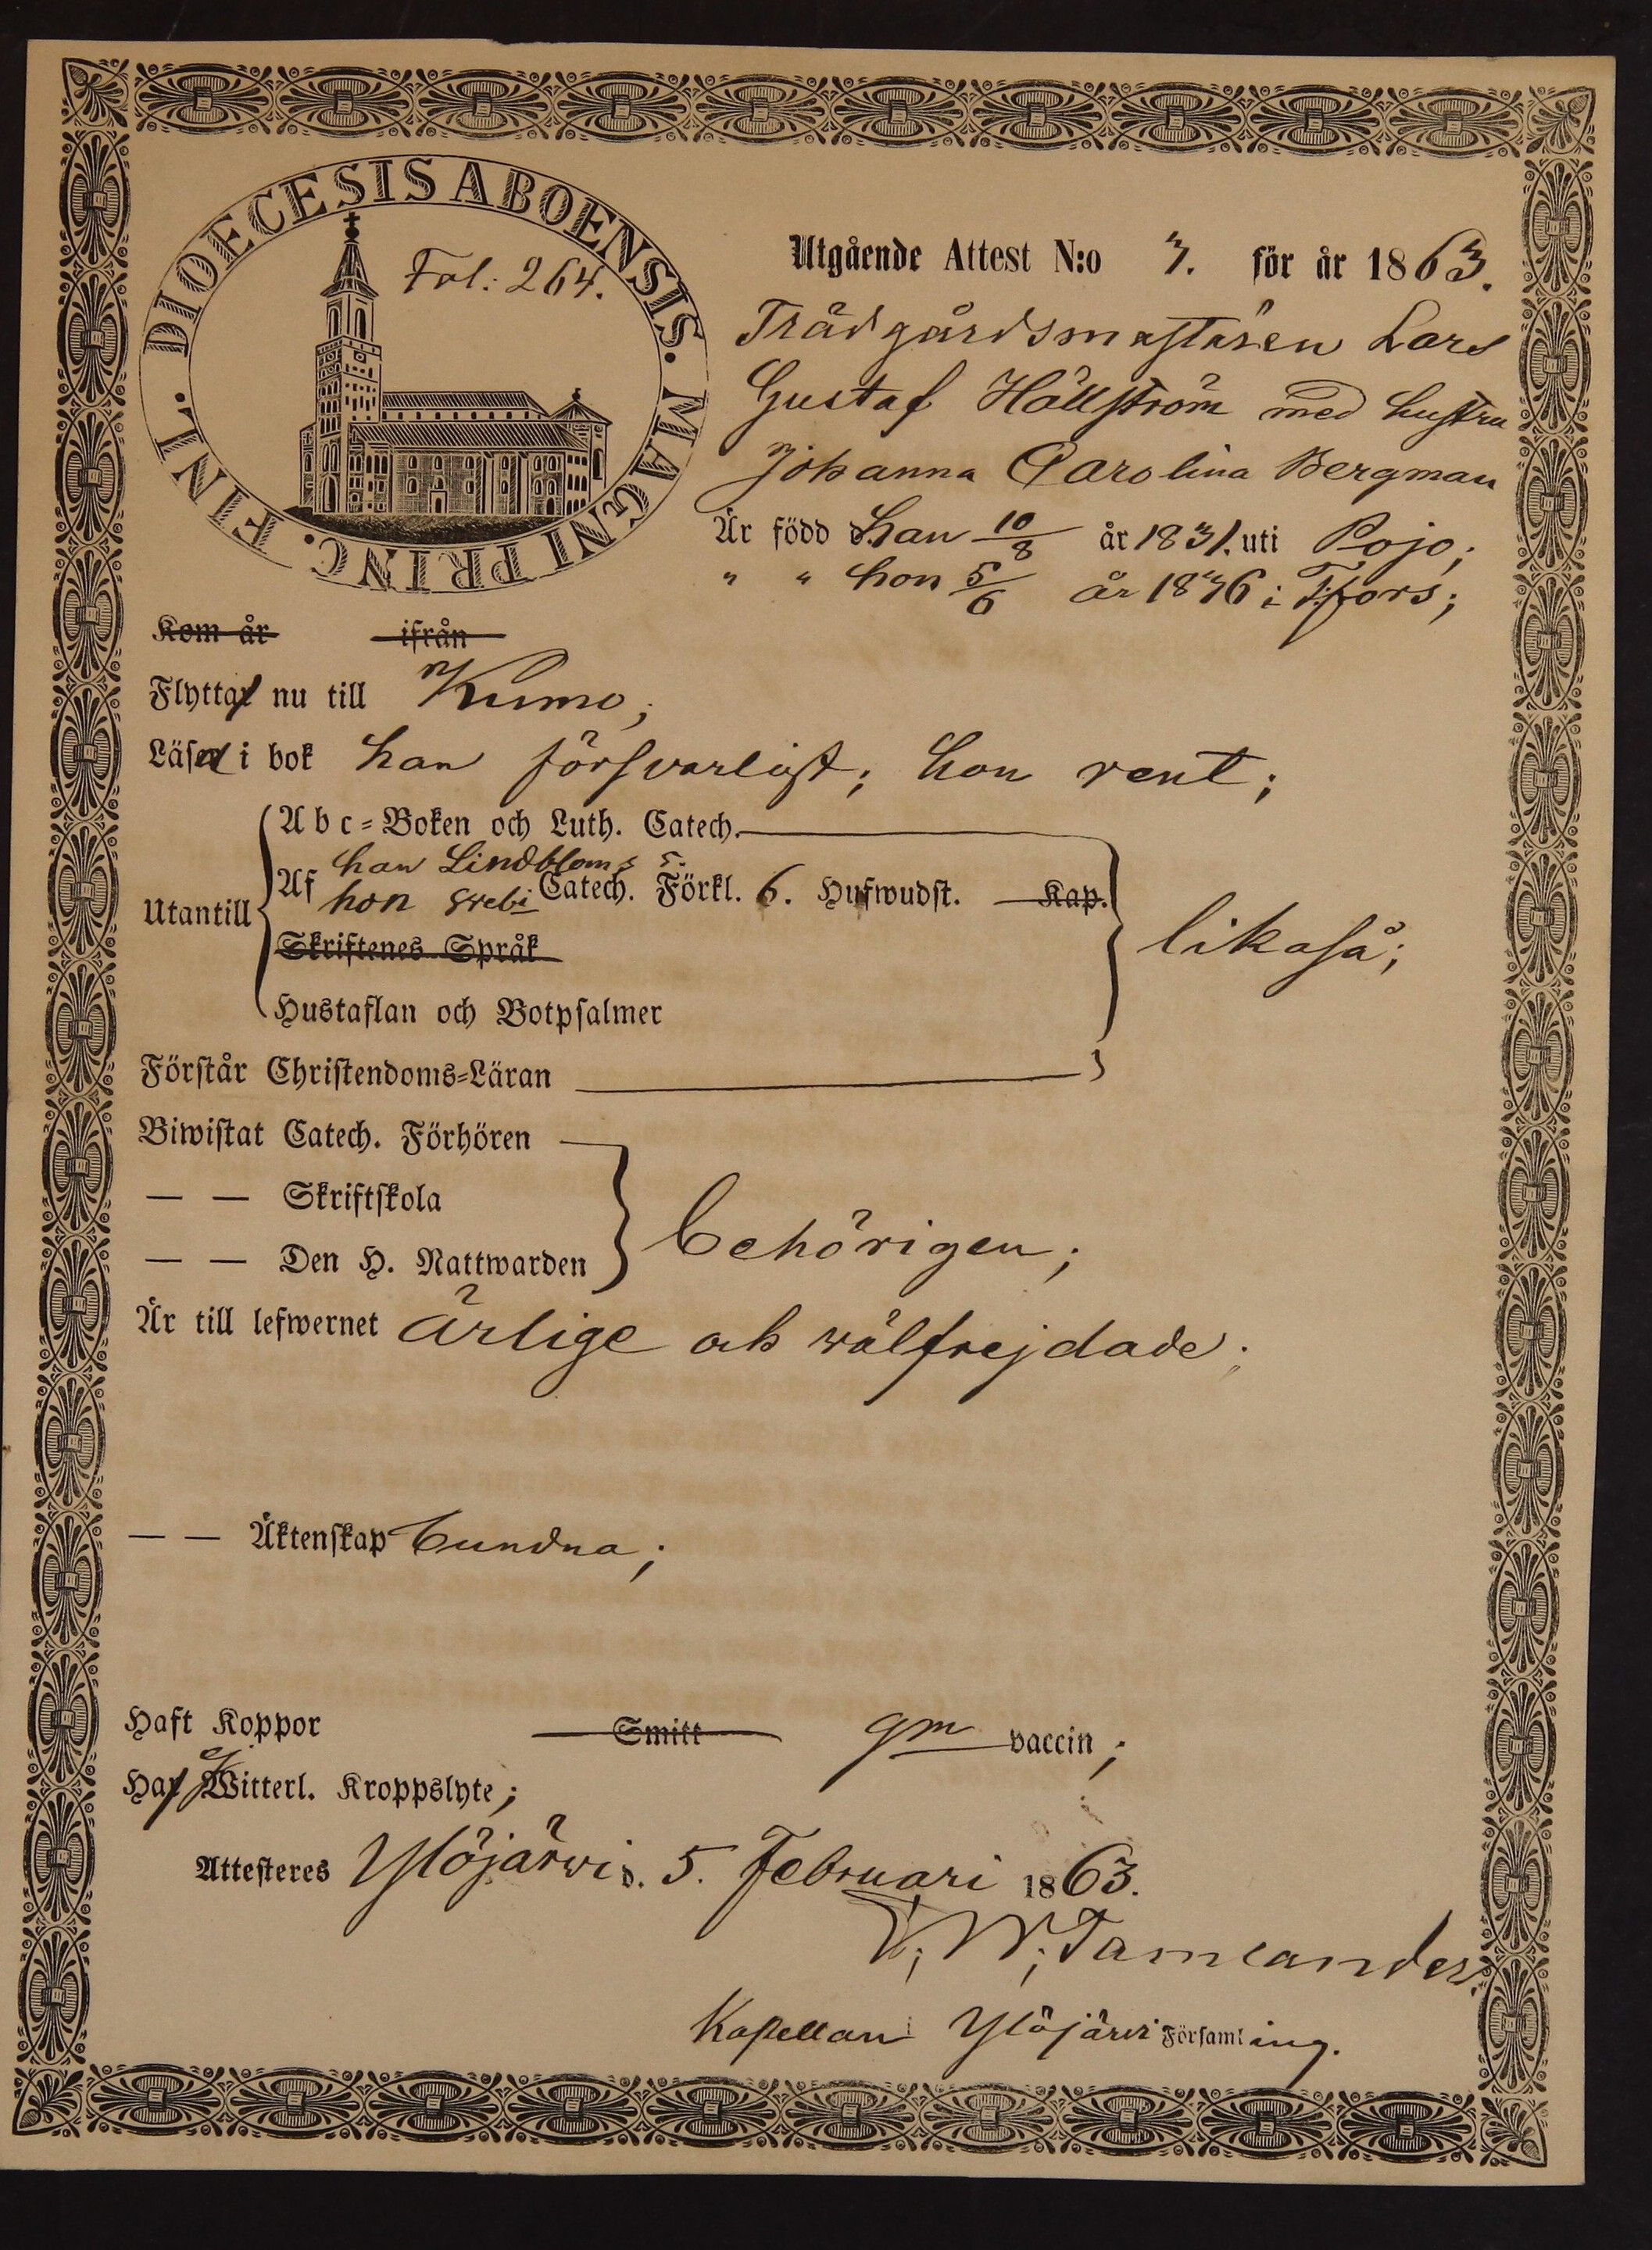 DIOECESIS ABOENSIS. MAGNI PRINC. FINL.
Fol: 264.
Utgående Attest N:o 3. för år 1863.
Trädgårdsmästaren Lars
Gustaf Hällström med hustru
Johanna Carolina Bergman
Är född han 10/8 år 1831. uti Pojo;
" " hon 5/6 år 1836 i T:fors;
Kom år ifrån
Flytta nu till Kumo;
Läsa i bok han försvarligt; hon rent;
Abc-Boken och Luth. Catech.
han Lindbloms 5.
Utantill Af hon Svebi Catech. Förkl. 6. Hufwudst. Kap.
likaså;
Skriftenes Språk
Hustaflan och Botpsalmer
Förstår Christendoms-Läran
Biwistat Catech. Förhören
— — Skriftskola
behörigen;
— — Den H. Nattwarden
Är till lefwernet ärlige och wälfrejdade;
— — Äktenskap bundna;
Haft Koppor Smitt gm vaccin;
Haf ej Witterl. Kroppslyte;
Attesteres Ylöjärwi d. 5. Februari 1863.
Tamlander
Kapellan i Ylöjärwi Församling.